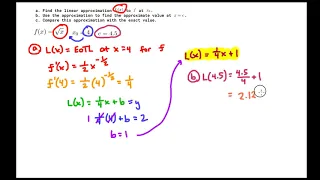 a. Find the linear approximation L(x) to f at x₀.
b. Use the approximation to find the approximate value at x = c.
c. Compare this approximation with the exact value.
f(x) = √x x₀ = 4 c = 4.5
(a) L(x) = EoTL at x=4 for f
f'(x) = 1/2 x^(-1/2)
f'(4) = 1/2 (4)^(-1/2) = 1/4
L(x) = 1/4 x + b = y
1 1/4(4) + b = 2
b = 1
L(x) = 1/4 x + 1
(b) L(4.5) = 4.5/4 + 1
= 2.12